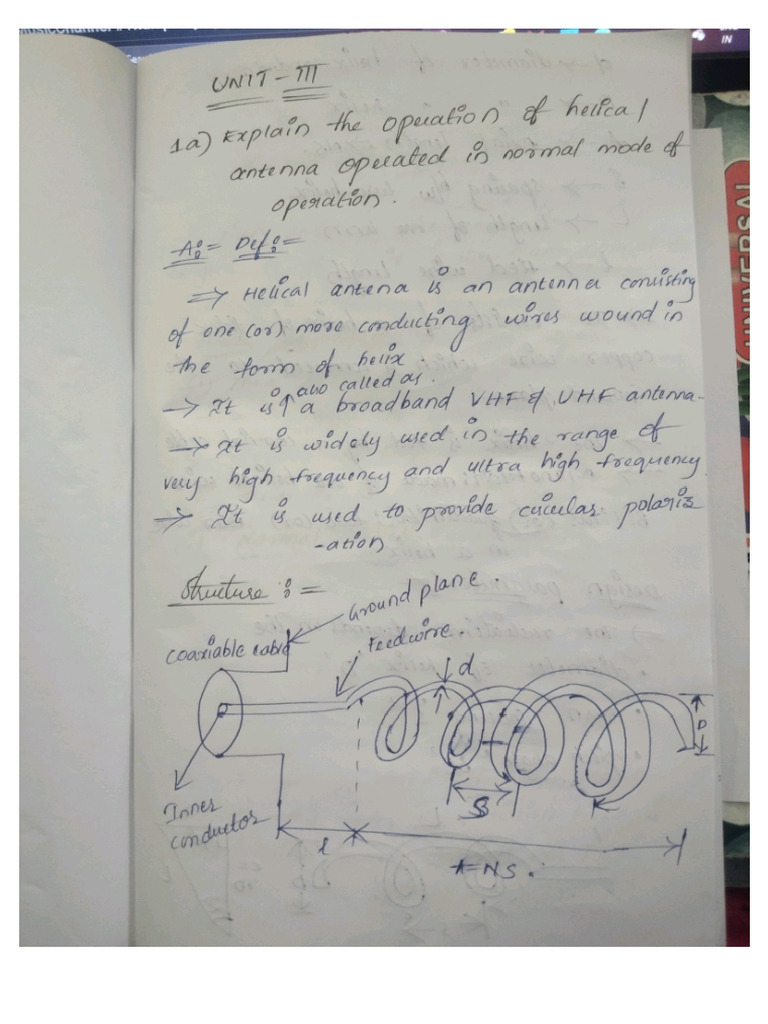 IN
UNIT - III
1a) Explain the operation of helical
antenna operated in normal mode of
operation.
A:= Def:=
⇒ Helical antena is an antenna consisting
of one (or) more conducting wires wound in
the form of helix.
also called as
→ It is ↑ a broadband VHF & UHF antenna.
→ It is widely used in the range of
very high frequency and ultra high frequency
→ It is used to provide circular polariz
-ation
Structure :=
Ground plane.
Feedwire.
Coaxiable cable
d
D
S
Inner
conductor
l
A=NS.
UNIVERSAL